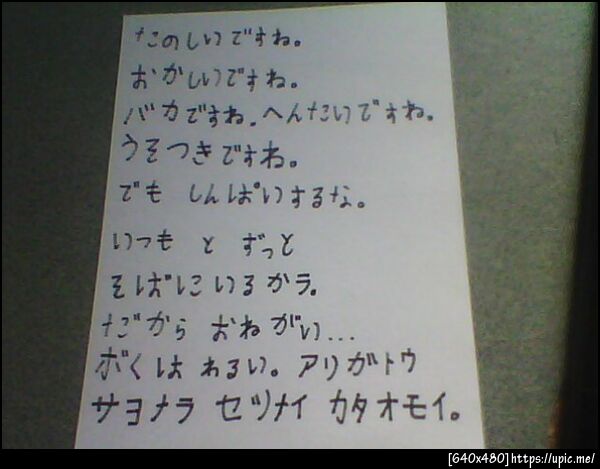 たのしいですね。
おかしいですね。
バカですね。へんたいですね。
うそつきですね。
でも しんぱいするな。
いつも と ずっと
そばにいるカラ。
だから おねがい...
ボくは わるい。アリガトウ
サヨナラ セツナイ カタオモイ。
[640x480]https://upic.me/